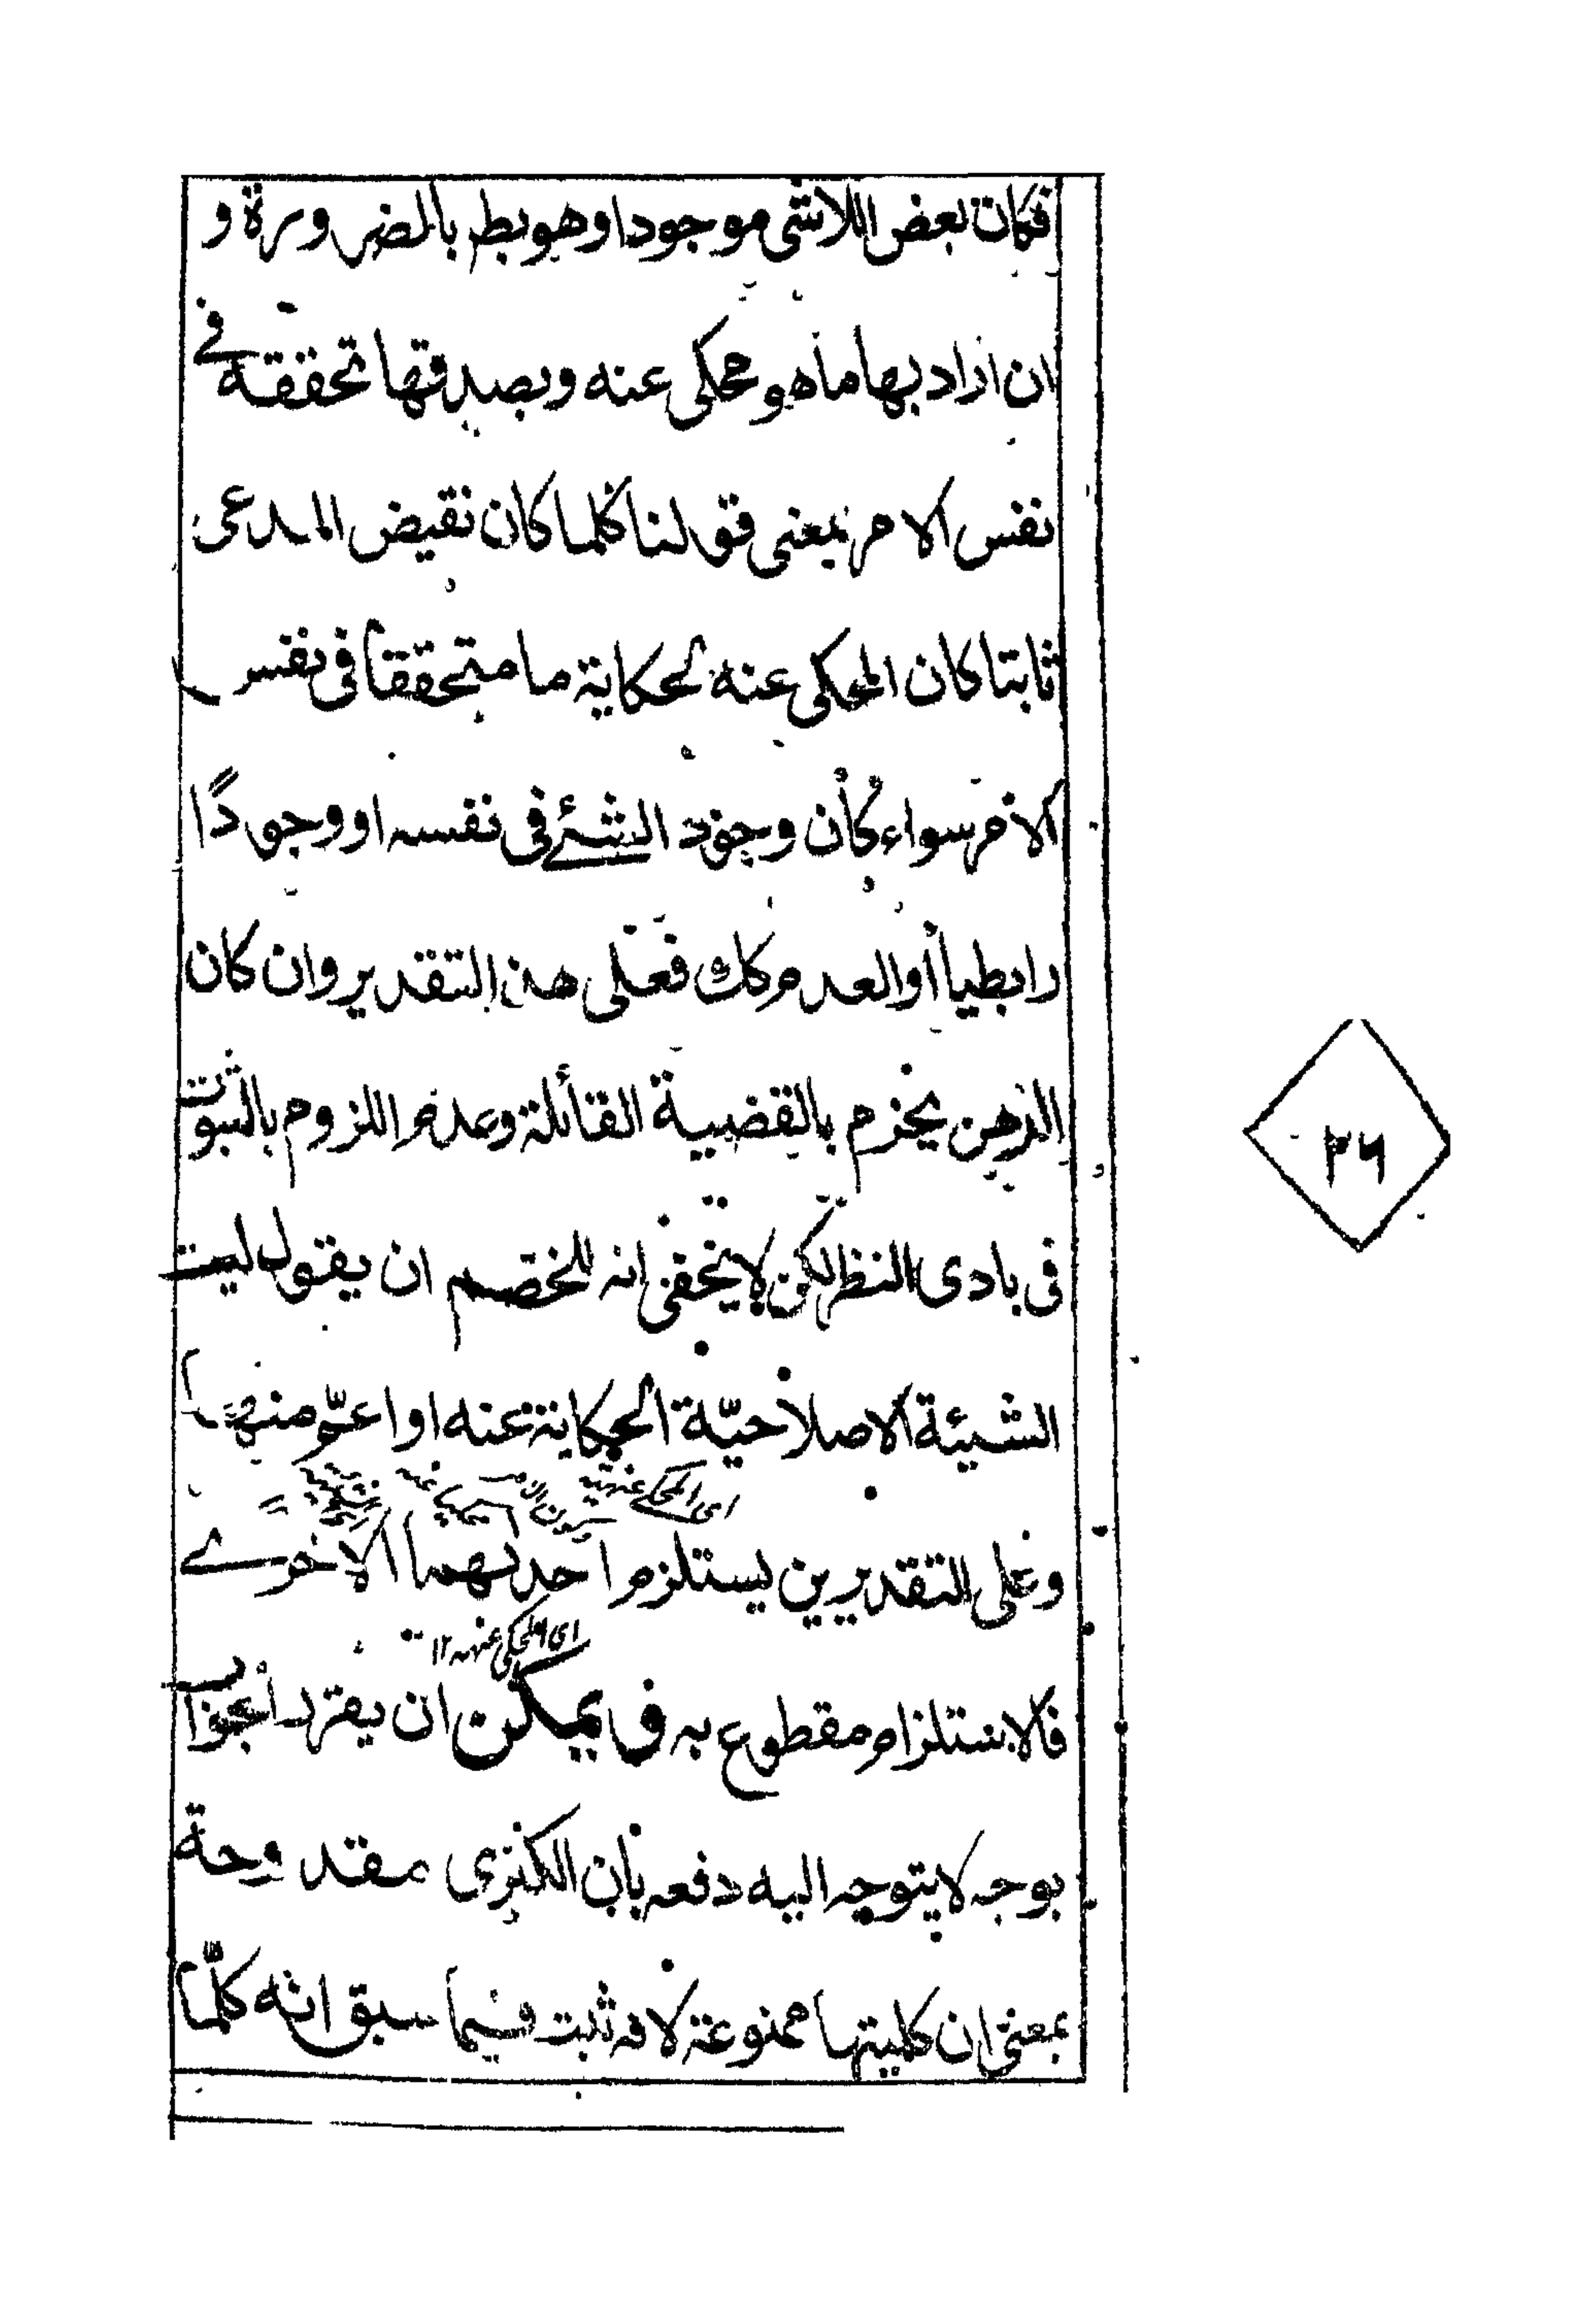 فكان بعض اللاشى موجودا وهو بط بالضرورة و
ان اراد بها ما هو محكى عنه وبصدقها تحققه فى
نفس الامر بمعنى قولنا كلما كان نقيض المدعى
ثابتا كان المحكى عنه لحكاية ما متحققا فى نفس
الامر سواء كان وجود الشئ فى نفسه او وجودًا
رابطيا أو العدم كك فعلى هذا التقدير وان كان
الذهن يجزم بالقضية القائلة وعدم اللزوم بالثبوت
فى بادى النظر لكن لا يخفى انه للخصم ان يقول ليست
الشيئة الا صلاحيّة الحكاية عنه او اعمّ منها
اى المحكى عنه
وعلى التقديرين يستلزم احدهما الاخرى
اى المحكى عنه ١٢
فالاستلزام مقطوع به ف يمكن ان يقرر الجواب
بوجه لا يتوجه اليه دفعه بان الكبرى مقدوحة
بمعنى ان كليتها ممنوعة لانه ثبت فيما سبق انه كلّما
٢٦